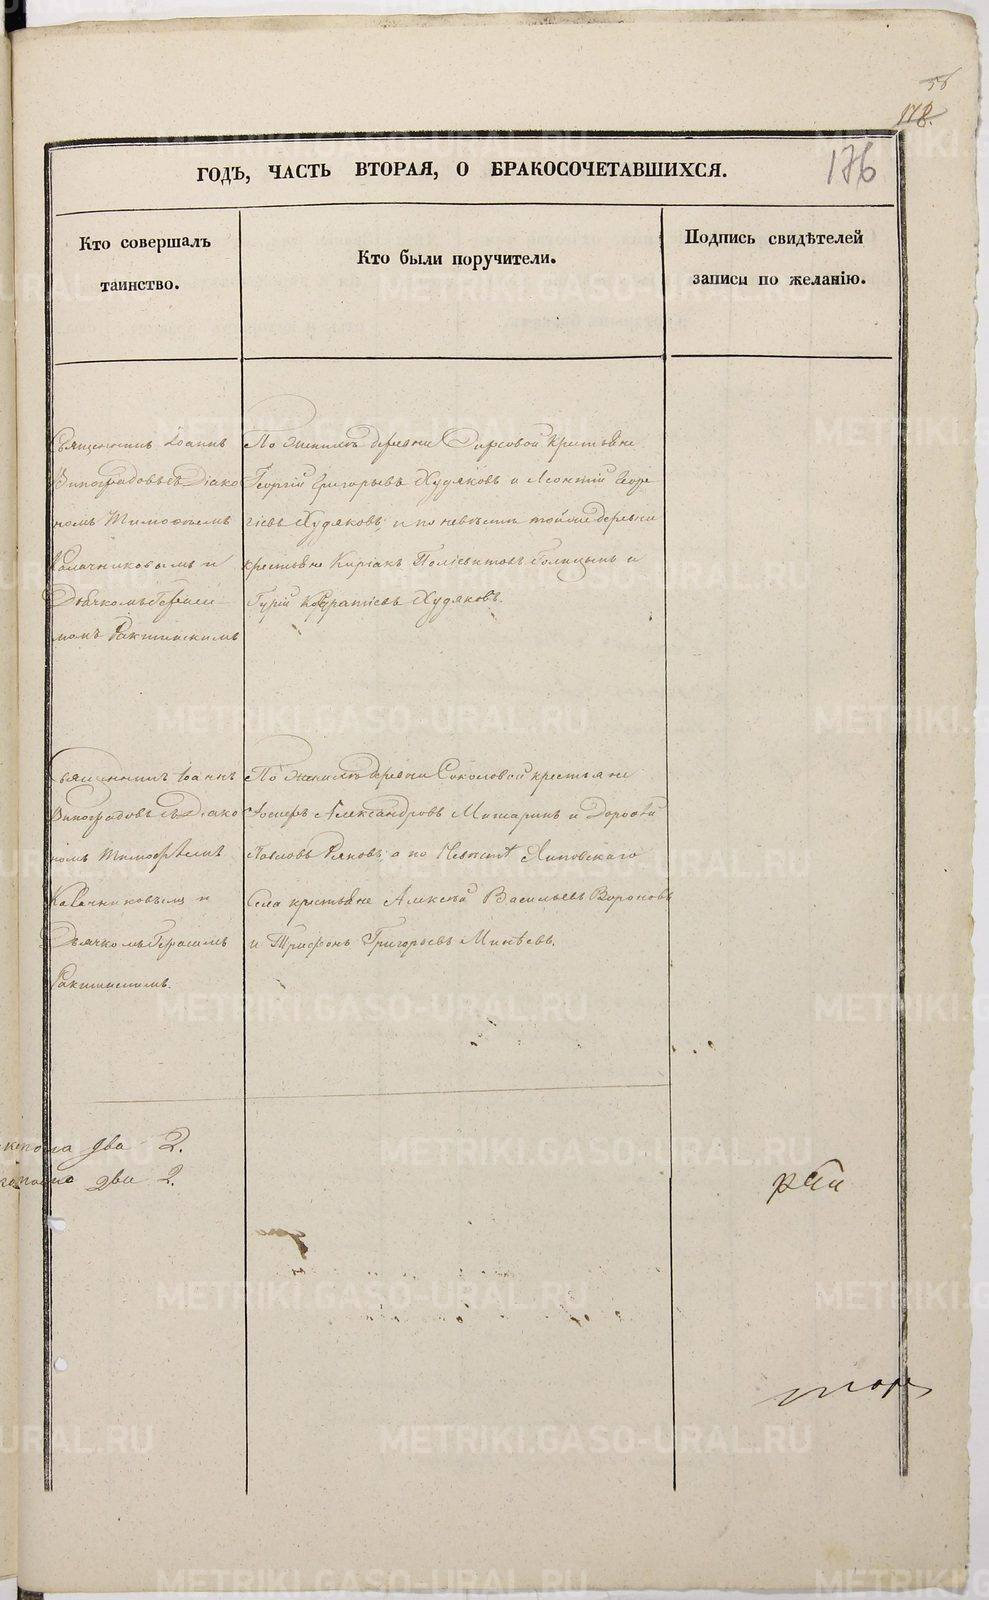 56
178.
176
ГОДЪ, ЧАСТЬ ВТОРАЯ, О БРАКОСОЧЕТАВШИХСЯ.
Кто совершалъ
таинство.
Кто были поручители.
Подпись свидѣтелей
записи по желанію.
Священникъ Іоаннъ
Виноградовъ съ Діако
номъ Тимофеемъ
Калачниковымъ и
Дьячкомъ
По Женихѣ деревни крестьяне
Георгій Григорьевъ Худяковъ и Леонтій Геор
гіевъ Худяковъ; и по невѣстѣ тойже деревни
крестьяне Киріакъ Поліевктовъ Голицынъ и
Гурій Худяковъ.
Священникъ Іоаннъ
Виноградовъ съ Діако
номъ Тимофѣемъ
Калачниковымъ и
Дьячкомъ Герасимъ
По Женихѣ деревни Соколовой крестьяне
Александровъ и Дорофей
Павловъ а по Невѣстѣ Липовскаго
Села крестьяне Алексѣй Васильевъ Вороновъ
и Трифонъ Григорьевъ Минѣевъ.
два 2.
два 2.
METRIKI.GASO-URAL.RU